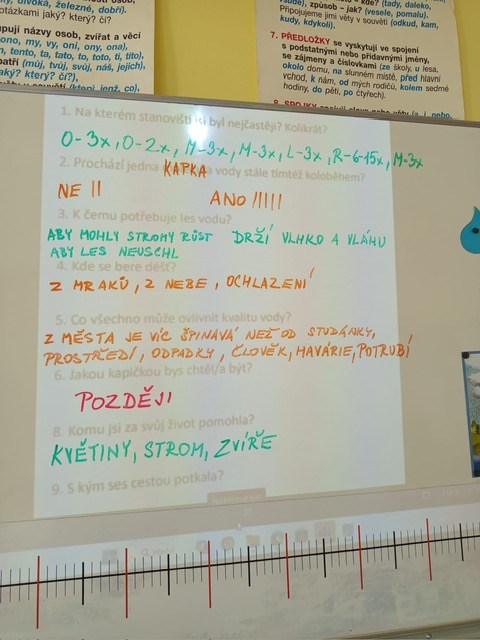 divoká, železné, dobří).
otázkami jaký? který? čí?
upují názvy osob, zvířat a věcí
ono, my, vy, oni, ony, ona),
n, tento, ta, tato, to, toto, ti, tito),
patří (můj, tvůj, svůj, náš, jejich),
aký? který? čí?),
– kde? (tady, daleko,
způsob – jak? (vesele, pomalu).
Připojujeme jimi věty v souvětí (odkud, kam,
kudy, kdykoli).
7. PŘEDLOŽKY se vyskytují ve spojení
s podstatnými nebo přídavnými jmény,
se zájmeny a číslovkami (ze školy, u lesa,
okolo domu, na slunném místě, před hlavní
vchod, k nám, od mých rodičů, kolem sedmé
hodiny, do pěti, po čtyřech).
1. Na kterém stanovišti jsi byl nejčastěji? Kolikrát?
O-3x, O-2x, M-3x, M-3x, L-3x, R-6-15x, M-3x
2. Prochází jedna KAPKA vody stále tímtéž koloběhem?
NE II ANO IIIII
3. K čemu potřebuje les vodu?
ABY MOHLY STROMY RŮST DRŽÍ VLHKO A VLÁHU
ABY LES NEUSCHL
4. Kde se bere déšť?
Z MRAKŮ, Z NEBE, OCHLAZENÍ
5. Co všechno může ovlivnit kvalitu vody?
Z MĚSTA JE VÍC ŠPINAVÁ NEŽ OD STUDÁNKY,
PROSTŘEDÍ, ODPADKY, ČLOVĚK, HAVÁRIE, POTRUBÍ
6. Jakou kapičkou bys chtěl/a být?
POZDĚJI
8. Komu jsi za svůj život pomohla?
KVĚTINY, STROM, ZVÍŘE
9. S kým ses cestou potkala?